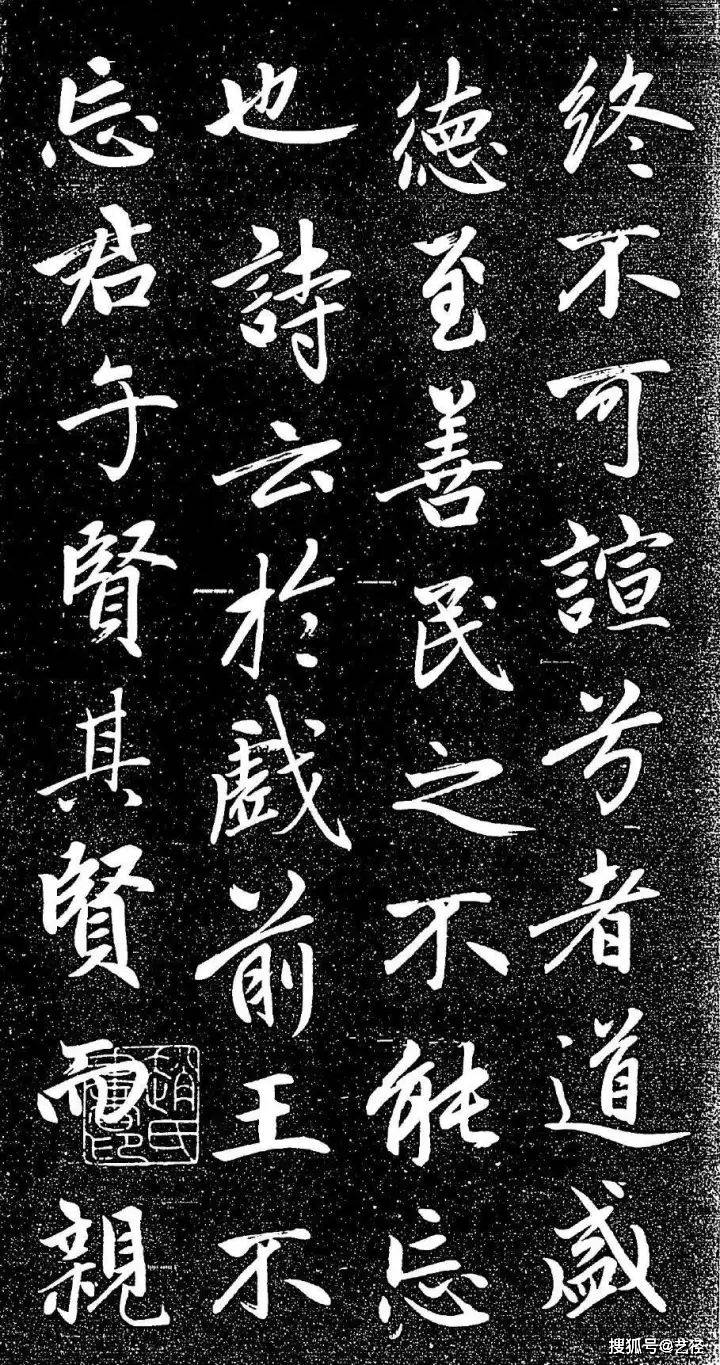 終不可諠兮者道盛
德至善民之不能忘
也詩云於戲前王不
忘君子賢其賢而親
趙氏書印
搜狐号@艺径